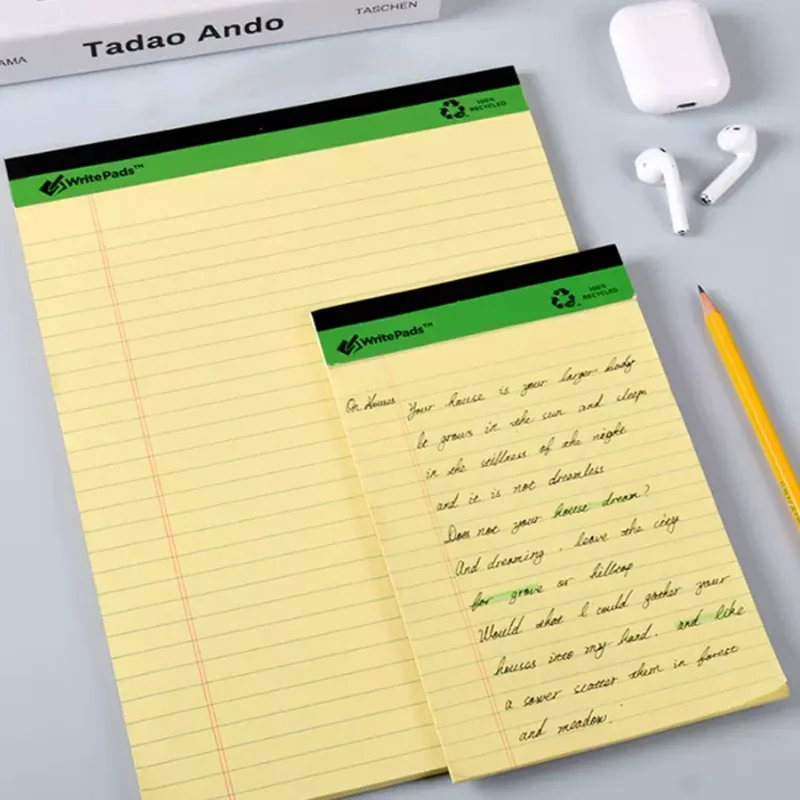 AMA Tadao Ando TASCHEN
WritePads™ 100% RECYCLED
WritePads™ 100% RECYCLED
On Houses
Your house is your larger body
It grows in the sun and sleeps
in the stillness of the night
and it is not dreamless
Does not your house dream?
And dreaming, leave the city
for grove or hilltop
Would that I could gather your
houses into my hand. and like
a sower scatter them in forest
and meadow.